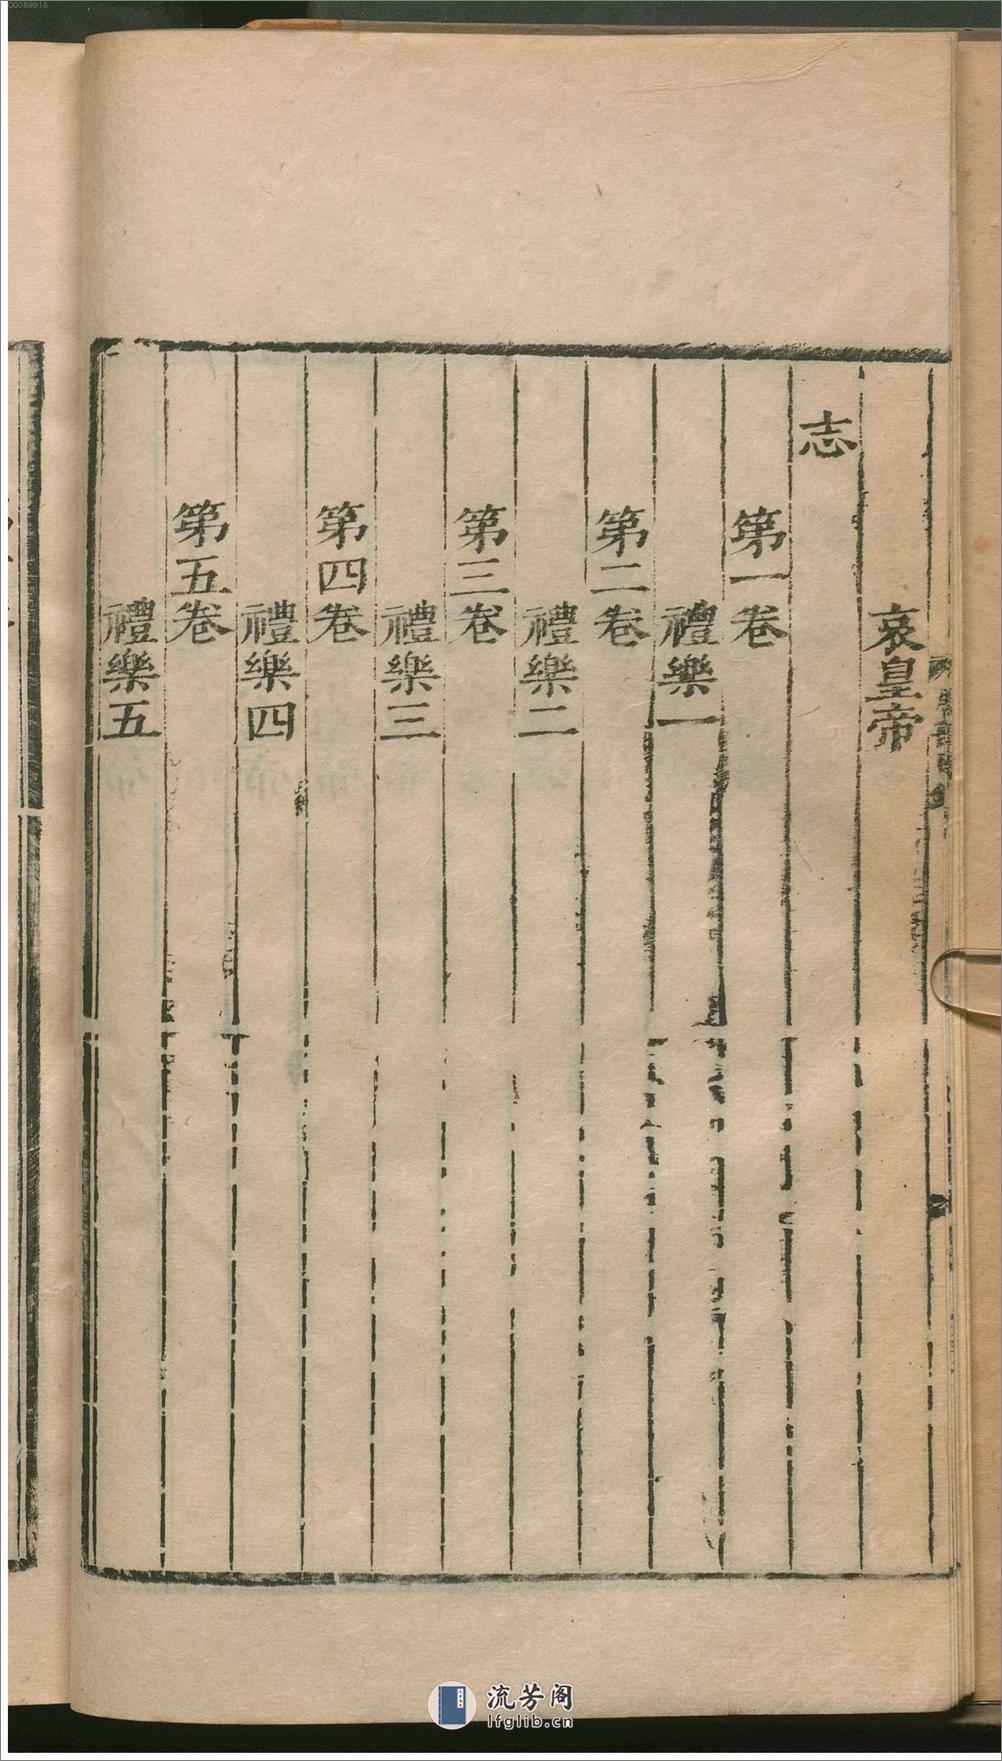 哀皇帝
志
第一卷
禮樂一
第二卷
禮樂二
第三卷
禮樂三
第四卷
禮樂四
第五卷
禮樂五
流芳阁
lfglib.cn
00059915